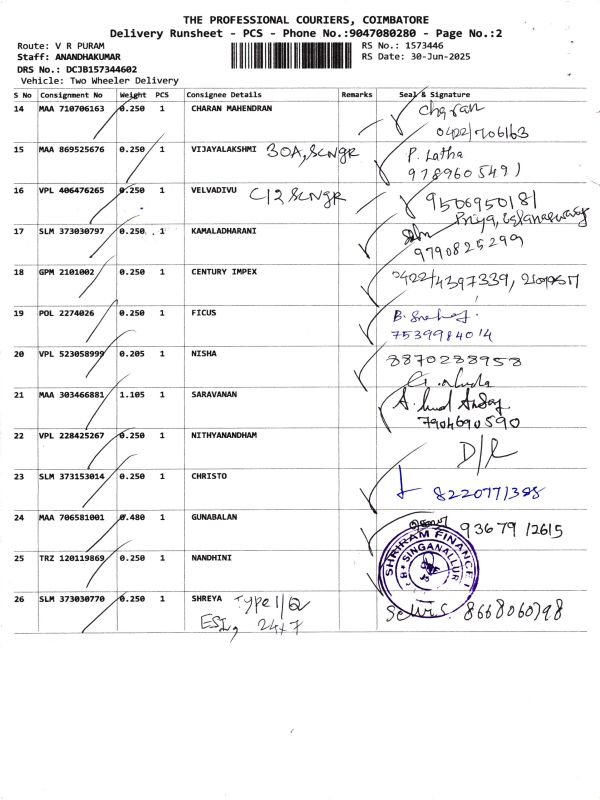 THE PROFESSIONAL COURIERS, COIMBATORE
Delivery Runsheet - PCS - Phone No.:9047080280 - Page No.:2
Route: V R PURAM
RS No.: 1573446
Staff: ANANDHAKUMAR
RS Date: 30-Jun-2025
DRS No.: DCJB157344602
Vehicle: Two Wheeler Delivery
S No Consignment No Weight PCS Consignee Details Remarks Seal & Signature
14 MAA 710706163 0.250 1 CHARAN MAHENDRAN Charan
0422/706163
15 MAA 869525676 0.250 1 VIJAYALAKSHMI 30A, SCNgR P. Latha
9789605491
16 VPL 406476265 0.250 1 VELVADIVU C12 SCNgR 9506950181
Priya
17 SLM 373030797 0.250 1 KAMALADHARANI
9790825299
18 GPM 2101002 0.250 1 CENTURY IMPEX 0422/4397339,
19 POL 2274026 0.250 1 FICUS B. Sneha
7539984014
20 VPL 523058999 0.205 1 NISHA 8870288958
G. Nisha
21 MAA 303466881 1.105 1 SARAVANAN
7904690590
22 VPL 228425267 0.250 1 NITHYANANDHAM D/L
23 SLM 373153014 0.250 1 CHRISTO 8220771388
24 MAA 706581001 0.480 1 GUNABALAN 93679 12615
25 TRZ 120119869 0.250 1 NANDHINI SHRIRAM FINANCE
SINGANALLUR
26 SLM 373030770 0.250 1 SHREYA Type 1/Q 8668060798
ESI, 24x7